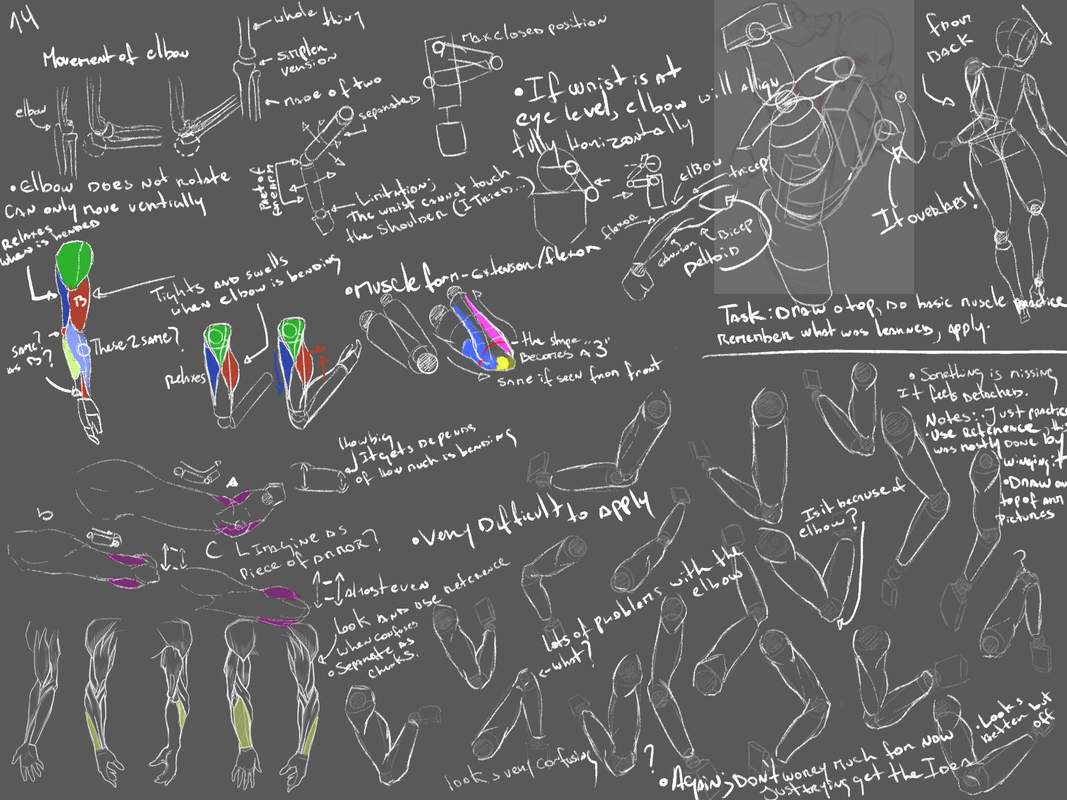 14
Movement of elbow
whole
thing
simpler
version
made of two
elbow
separated
Max closed position
• Elbow does not rotate
can only move vertically
Limitation;
The wrist cannot touch
the shoulder (I Tried...)
• If wrist is at
eye level, elbow will align
fully horizontally
elbow
tricep
flexor
Bicep
Deltoid
from
back
It overlaps!
Task: Draw atop, Do basic muscle practice
Remember what was learned, apply.
Relaxes
when is bended
Tights and swells
when elbow is bending
These 2 same?
same?
as B?
Relaxes
• Muscle form - extension/flexor
the shape
Becomes a "3"
same if seen from front
How big
It gets depends
of how much is bending
A
b
C
Imagine as
piece of armor?
Almost even
Look and use reference
when confused
• Separate as
chunks.
• Very Difficult to apply
lots of problems with the
elbow
what?
looks very confusing
?
Is it because of
elbow?
• Something is missing
It feels detached.
Notes: • Just practice
• Use Reference, this
was mostly done by
winging it
• Draw on
top of arm
pictures
?
• Looks
better but
off
• Again; Don't worry much for now
Just trying get the Idea